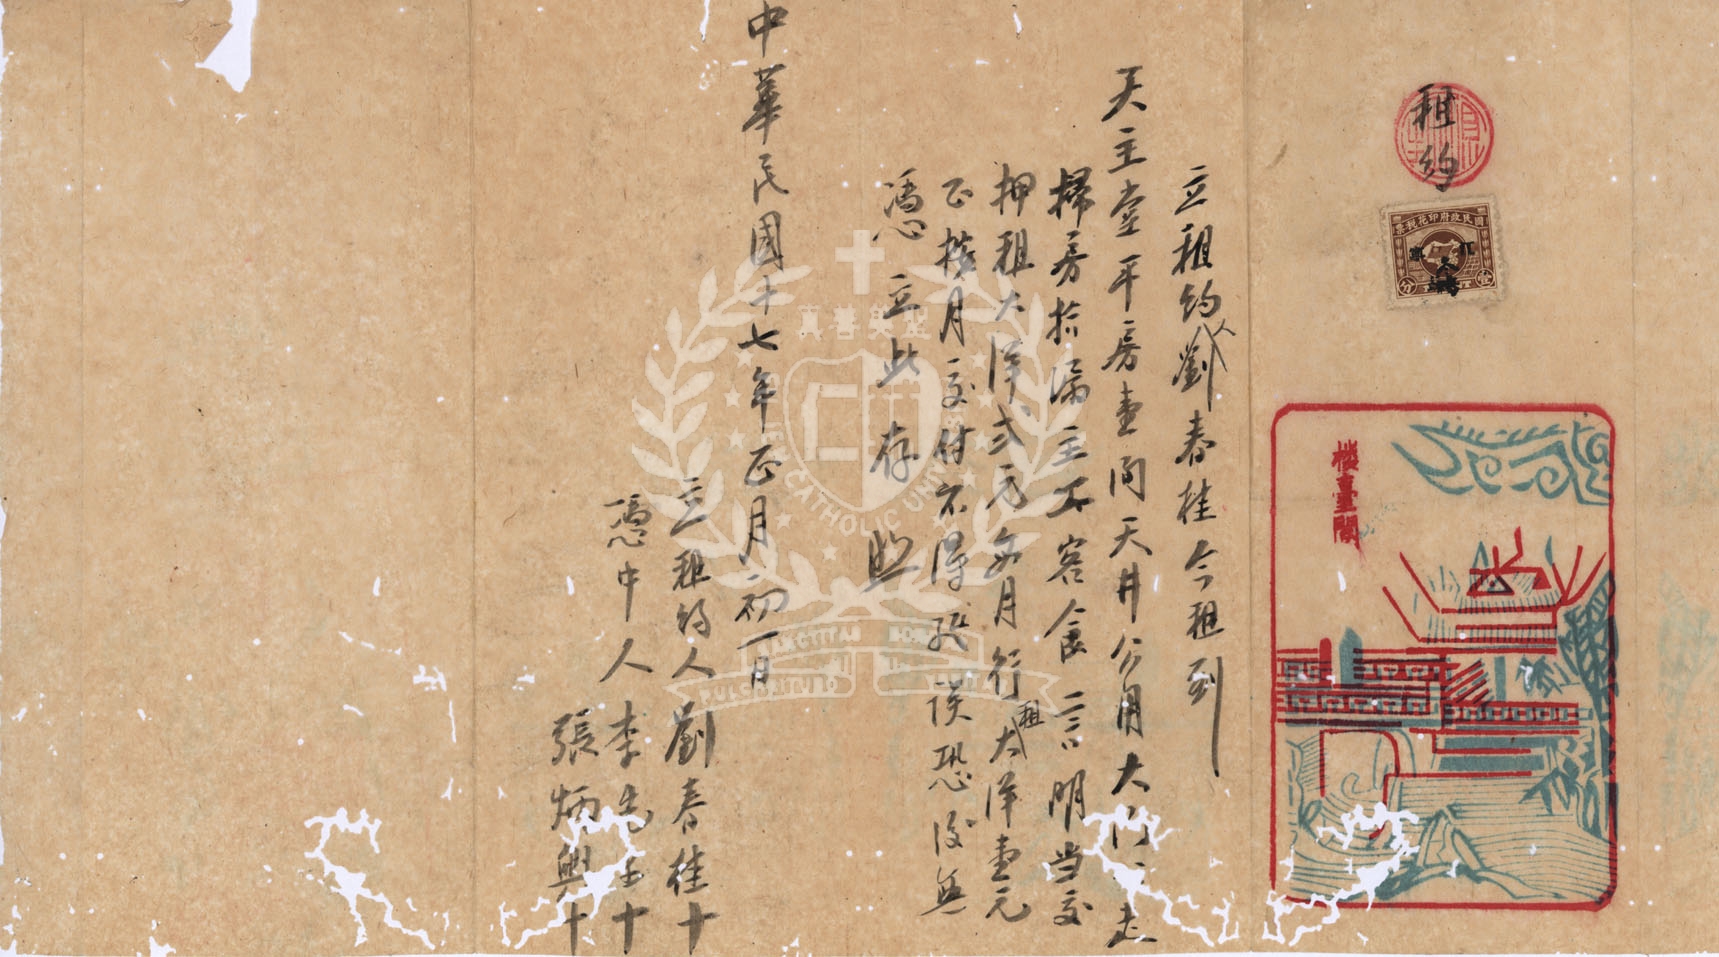 租約
國民政府印花稅票
江
壹
分
樓臺閣
立租約人劉春桂今租到
天主堂平房壹間天井公用大門
掃房拾漏主工客食言明当交
押租大洋弍元每月行租大洋壹元
正按月交付不得延誤恐後無
憑立此存照
中華民國十七年正月初一日
立租約人劉春桂十
憑中人李
張炳興十
真善美聖
仁
CATHOLIC UNIV
SANCTITAS
BONI
PULCHRITUDO